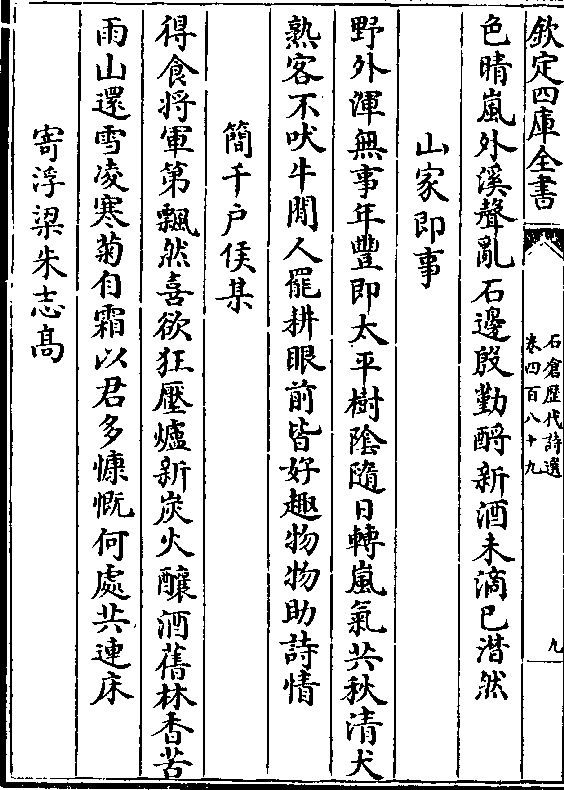 欽定四庫全書
石倉歷代詩選
卷四百八十九
九
色晴嵐外溪聲亂石邊殷勤酹新酒未滴已潸然
山家即事
野外渾無事年豐即太平樹陰隨日轉嵐氣共秋清犬
熟客不吠牛閒人罷耕眼前皆好趣物物助詩情
簡千户侯某
得食将軍第飄然喜欲狂壓爐新炭火釀酒舊林香苦
雨山還雪凌寒菊自霜以君多慷慨何處共連床
寄浮梁朱志高